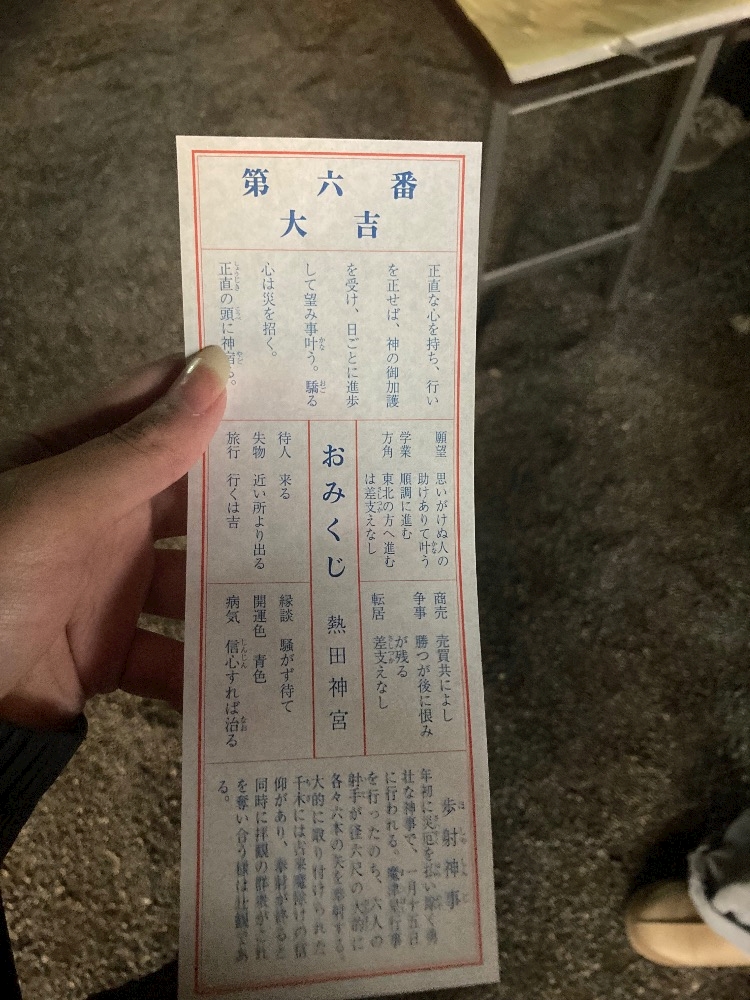 第六番
大吉
正直な心を持ち、行い
を正せば、神の御加護
を受け、日ごとに進歩
して望み事叶う。驕る
心は災を招く。
正直の頭に神宿る。
願望 思いがけぬ人の
助けありて叶う
学業 順調に進む
方角 東北の方へ進む
は差支えなし
おみくじ 熱田神宮
待人 来る
失物 近い所より出る
旅行 行くは吉
商売 売買共によし
争事 勝つが後に恨み
が残る
転居 差支えなし
縁談 騒がず待て
開運色 青色
病気 信心すれば治る
歩射神事
年初に災厄を払い除く勇
壮な神事で、一月十五日
に行われる。魔津星行事
を行ったのち、六人の
射手が径六尺の大的に
各々六本の矢を奉射する。
大的に取り付けられた
千木には古来魔除けの信
仰があり、奉射が終ると
同時に拝観の群衆がこれ
を奪い合う様は壮観であ
る。